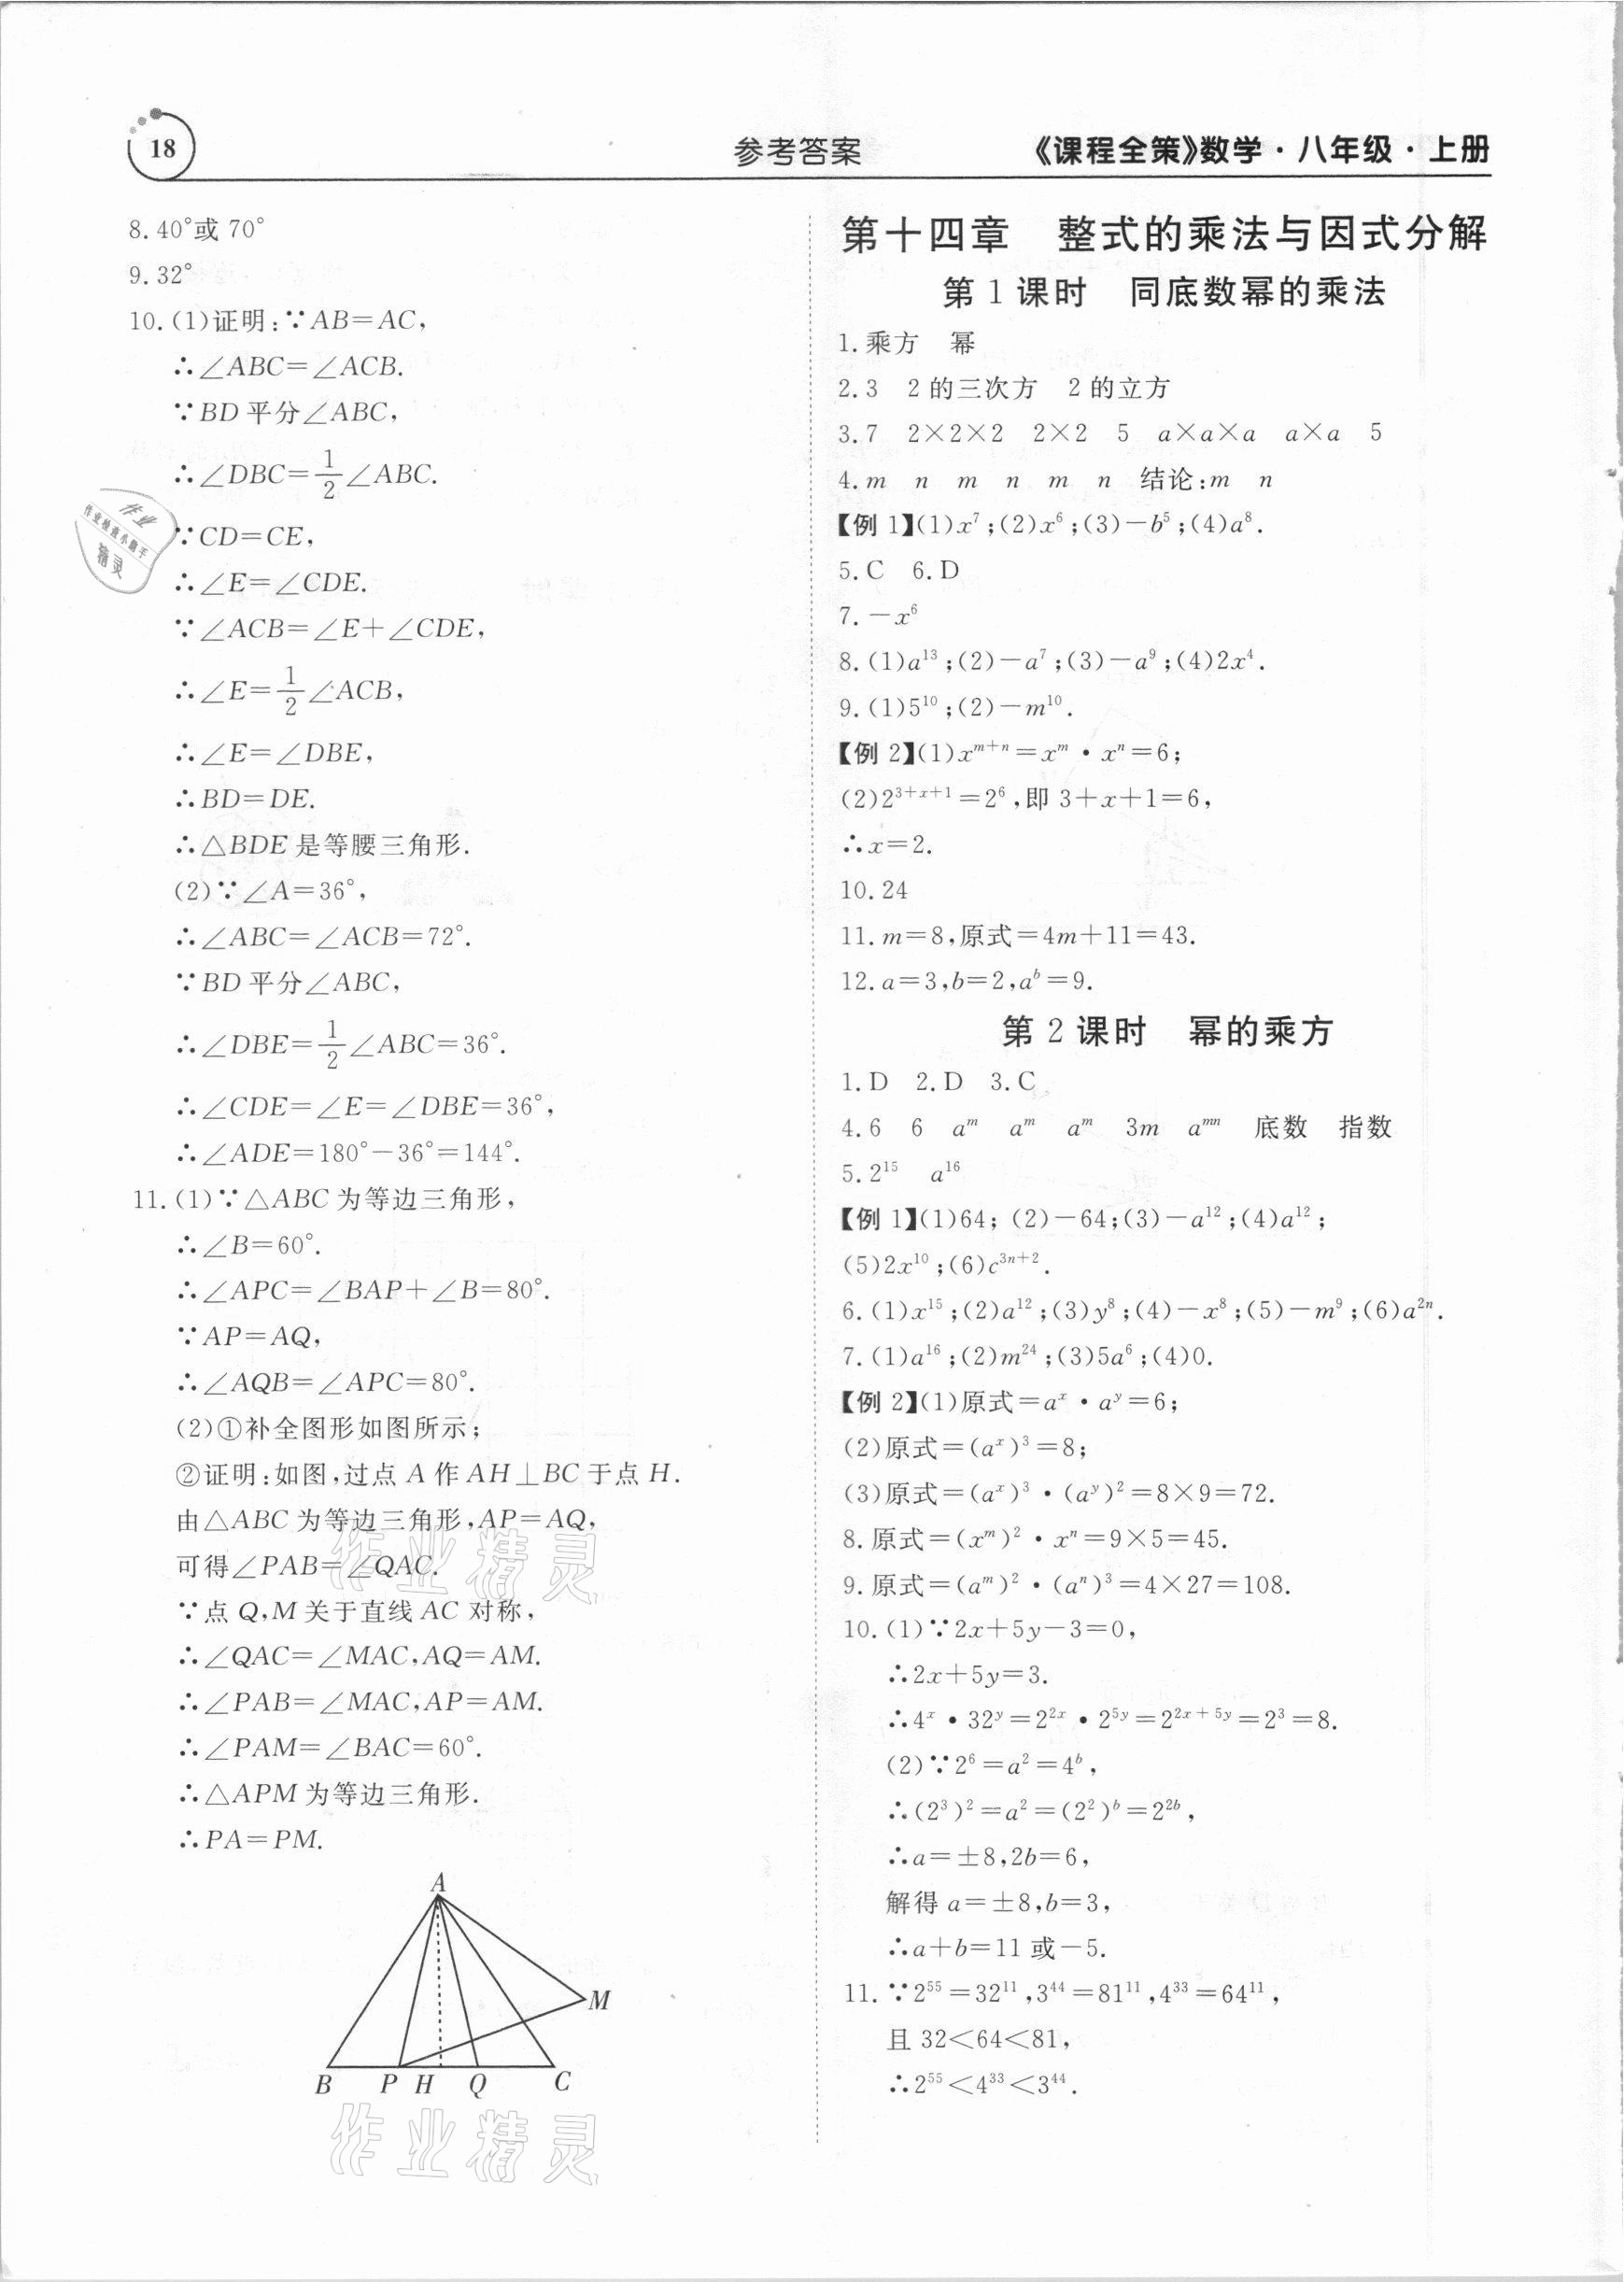 18
参考答案
《课程全策》数学·八年级·上册
8.40°或 70°
9.32°
10.(1)证明:∵AB=AC,
∴∠ABC=∠ACB.
∵BD 平分∠ABC,
∴∠DBC=1/2∠ABC.
∵CD=CE,
∴∠E=∠CDE.
∵∠ACB=∠E+∠CDE,
∴∠E=1/2∠ACB,
∴∠E=∠DBE,
∴BD=DE.
∴△BDE 是等腰三角形.
(2)∵∠A=36°,
∴∠ABC=∠ACB=72°.
∵BD 平分∠ABC,
∴∠DBE=1/2∠ABC=36°.
∴∠CDE=∠E=∠DBE=36°,
∴∠ADE=180°-36°=144°.
11.(1)∵△ABC 为等边三角形,
∴∠B=60°.
∴∠APC=∠BAP+∠B=80°.
∵AP=AQ,
∴∠AQB=∠APC=80°.
(2)①补全图形如图所示;
②证明:如图,过点 A 作 AH⊥BC 于点 H.
由△ABC 为等边三角形,AP=AQ,
可得∠PAB=∠QAC.
∵点 Q,M 关于直线 AC 对称,
∴∠QAC=∠MAC,AQ=AM.
∴∠PAB=∠MAC,AP=AM.
∴∠PAM=∠BAC=60°.
∴△APM 为等边三角形.
∴PA=PM.
A
M
B P H Q C
作业
作业检查小助手
精灵
作业精灵
作业精灵
第十四章 整式的乘法与因式分解
第 1 课时 同底数幂的乘法
1.乘方 幂
2.3 2 的三次方 2 的立方
3.7 2×2×2 2×2 5 a×a×a a×a 5
4.m n m n m n 结论:m n
【例 1】(1)x⁷;(2)x⁶;(3)-b⁵;(4)a⁸.
5.C 6.D
7.-x⁶
8.(1)a¹³;(2)-a⁷;(3)-a⁹;(4)2x⁴.
9.(1)5¹⁰;(2)-m¹⁰.
【例 2】(1)x^{m+n}=x^m·x^n=6;
(2)2^{3+x+1}=2⁶,即 3+x+1=6,
∴x=2.
10.24
11.m=8,原式=4m+11=43.
12.a=3,b=2,a^b=9.
第 2 课时 幂的乘方
1.D 2.D 3.C
4.6 6 a^m a^m a^m 3m a^{mn} 底数 指数
5.2¹⁵ a¹⁶
【例 1】(1)64; (2)-64;(3)-a¹²;(4)a¹²;
(5)2x¹⁰;(6)c^{3n+2}.
6.(1)x¹⁵;(2)a¹²;(3)y⁸;(4)-x⁸;(5)-m⁹;(6)a^{2n}.
7.(1)a¹⁶;(2)m²⁴;(3)5a⁶;(4)0.
【例 2】(1)原式=a^x·a^y=6;
(2)原式=(a^x)³=8;
(3)原式=(a^x)³·(a^y)²=8×9=72.
8.原式=(x^m)²·x^n=9×5=45.
9.原式=(a^m)²·(a^n)³=4×27=108.
10.(1)∵2x+5y-3=0,
∴2x+5y=3.
∴4^x·32^y=2^{2x}·2^{5y}=2^{2x+5y}=2³=8.
(2)∵2⁶=a²=4^b,
∴(2³)²=a²=(2²)^b=2^{2b},
∴a=±8,2b=6,
解得 a=±8,b=3,
∴a+b=11 或-5.
11.∵2⁵⁵=32¹¹,3⁴⁴=81¹¹,4³³=64¹¹,
且 32<64<81,
∴2⁵⁵<4³³<3⁴⁴.